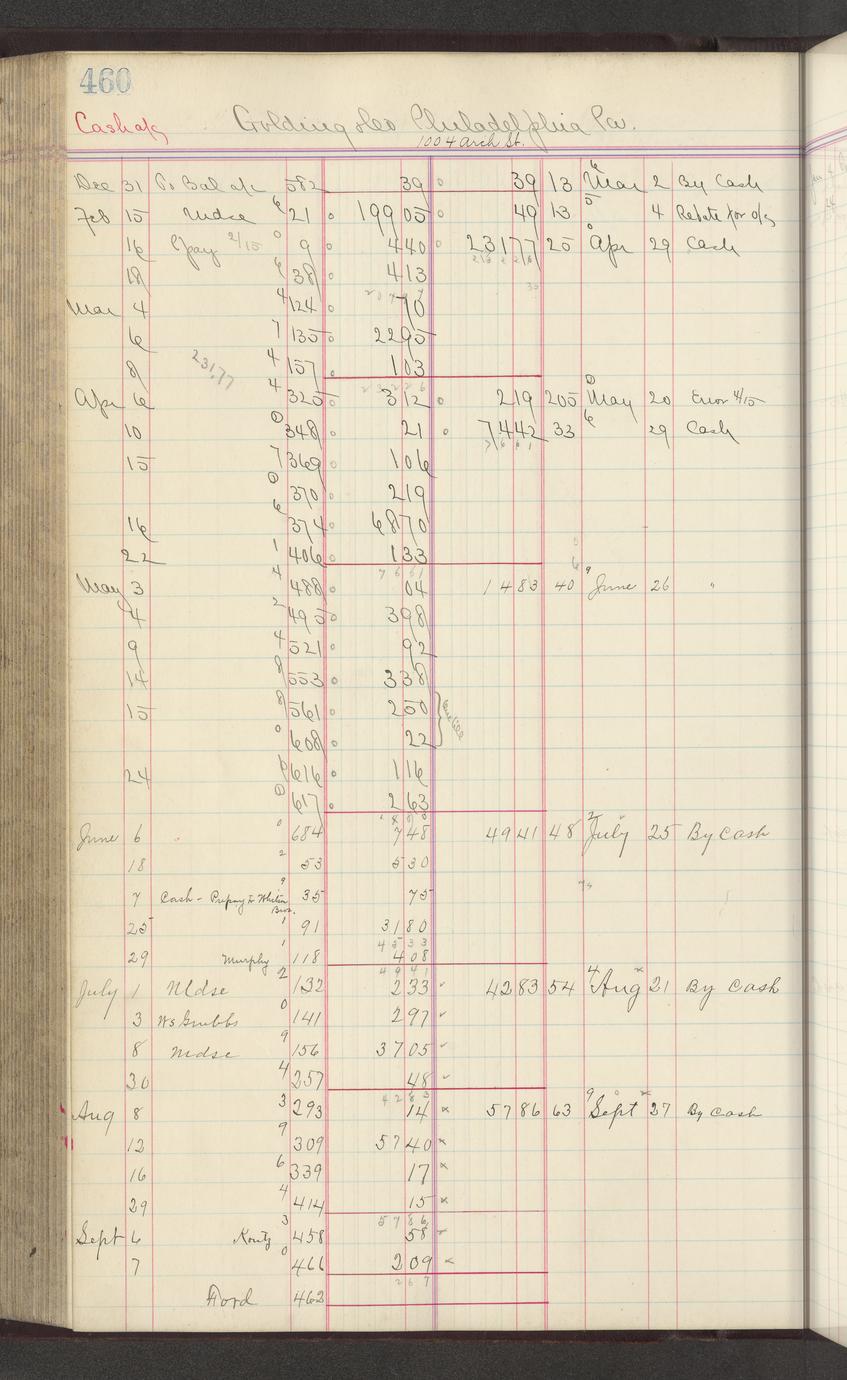 460
Cash a/c Golding & Co Philadelphia Pa.
1004 Arch St.
Dec 31 To Bal a/c 582 39 39 13 Mar 2 By Cash
Feb 15 Mdse 6 21 199 05 49 13 5 4 Rebate for o/c
16 2/15 0 9 4 40 231 77 25 0 Apr 29 Cash
18 6 38 4 13
Mar 4 4 124 70
6 7 135 22 95
8 231.77 4 157 1 03
232 26
Apr 6 4 325 3 12 2 19 205 0 May 20 Error 4/15
10 0 348 21 74 42 33 6 29 Cash
15 7 369 1 06
0 370 2 19
16 6 374 68 70
22 1 406 1 33
76 61
May 3 4 488 04 14 83 40 9 June 26 "
4 2 495 3 98
9 4 521 92
14 8 553 3 38
15 8 561 2 50
0 608 22
24 616 1 16
0 617 2 63
June 6 0 684 7 48 49 41 48 2 July 25 By Cash
18 2 53 5 30
7 Cash - Prepay to Whiting Bros. 9 35 75
25 1 91 31 80
45 33
29 Murphy 1 118 4 08
49 41
July 1 Mdse 2 132 2 33 42 83 54 4 Aug 21 By Cash
3 WS Grubbs 0 141 2 97
8 Mdse 9 156 37 05
30 4 257 48
42 83
Aug 8 3 293 14 57 86 63 9 Sept 27 By Cash
12 9 309 57 40
16 6 339 17
29 4 414 15
57 86
Sept 6 Koutz 3 458 58
7 0 466 2 09
2 67
Ford 462